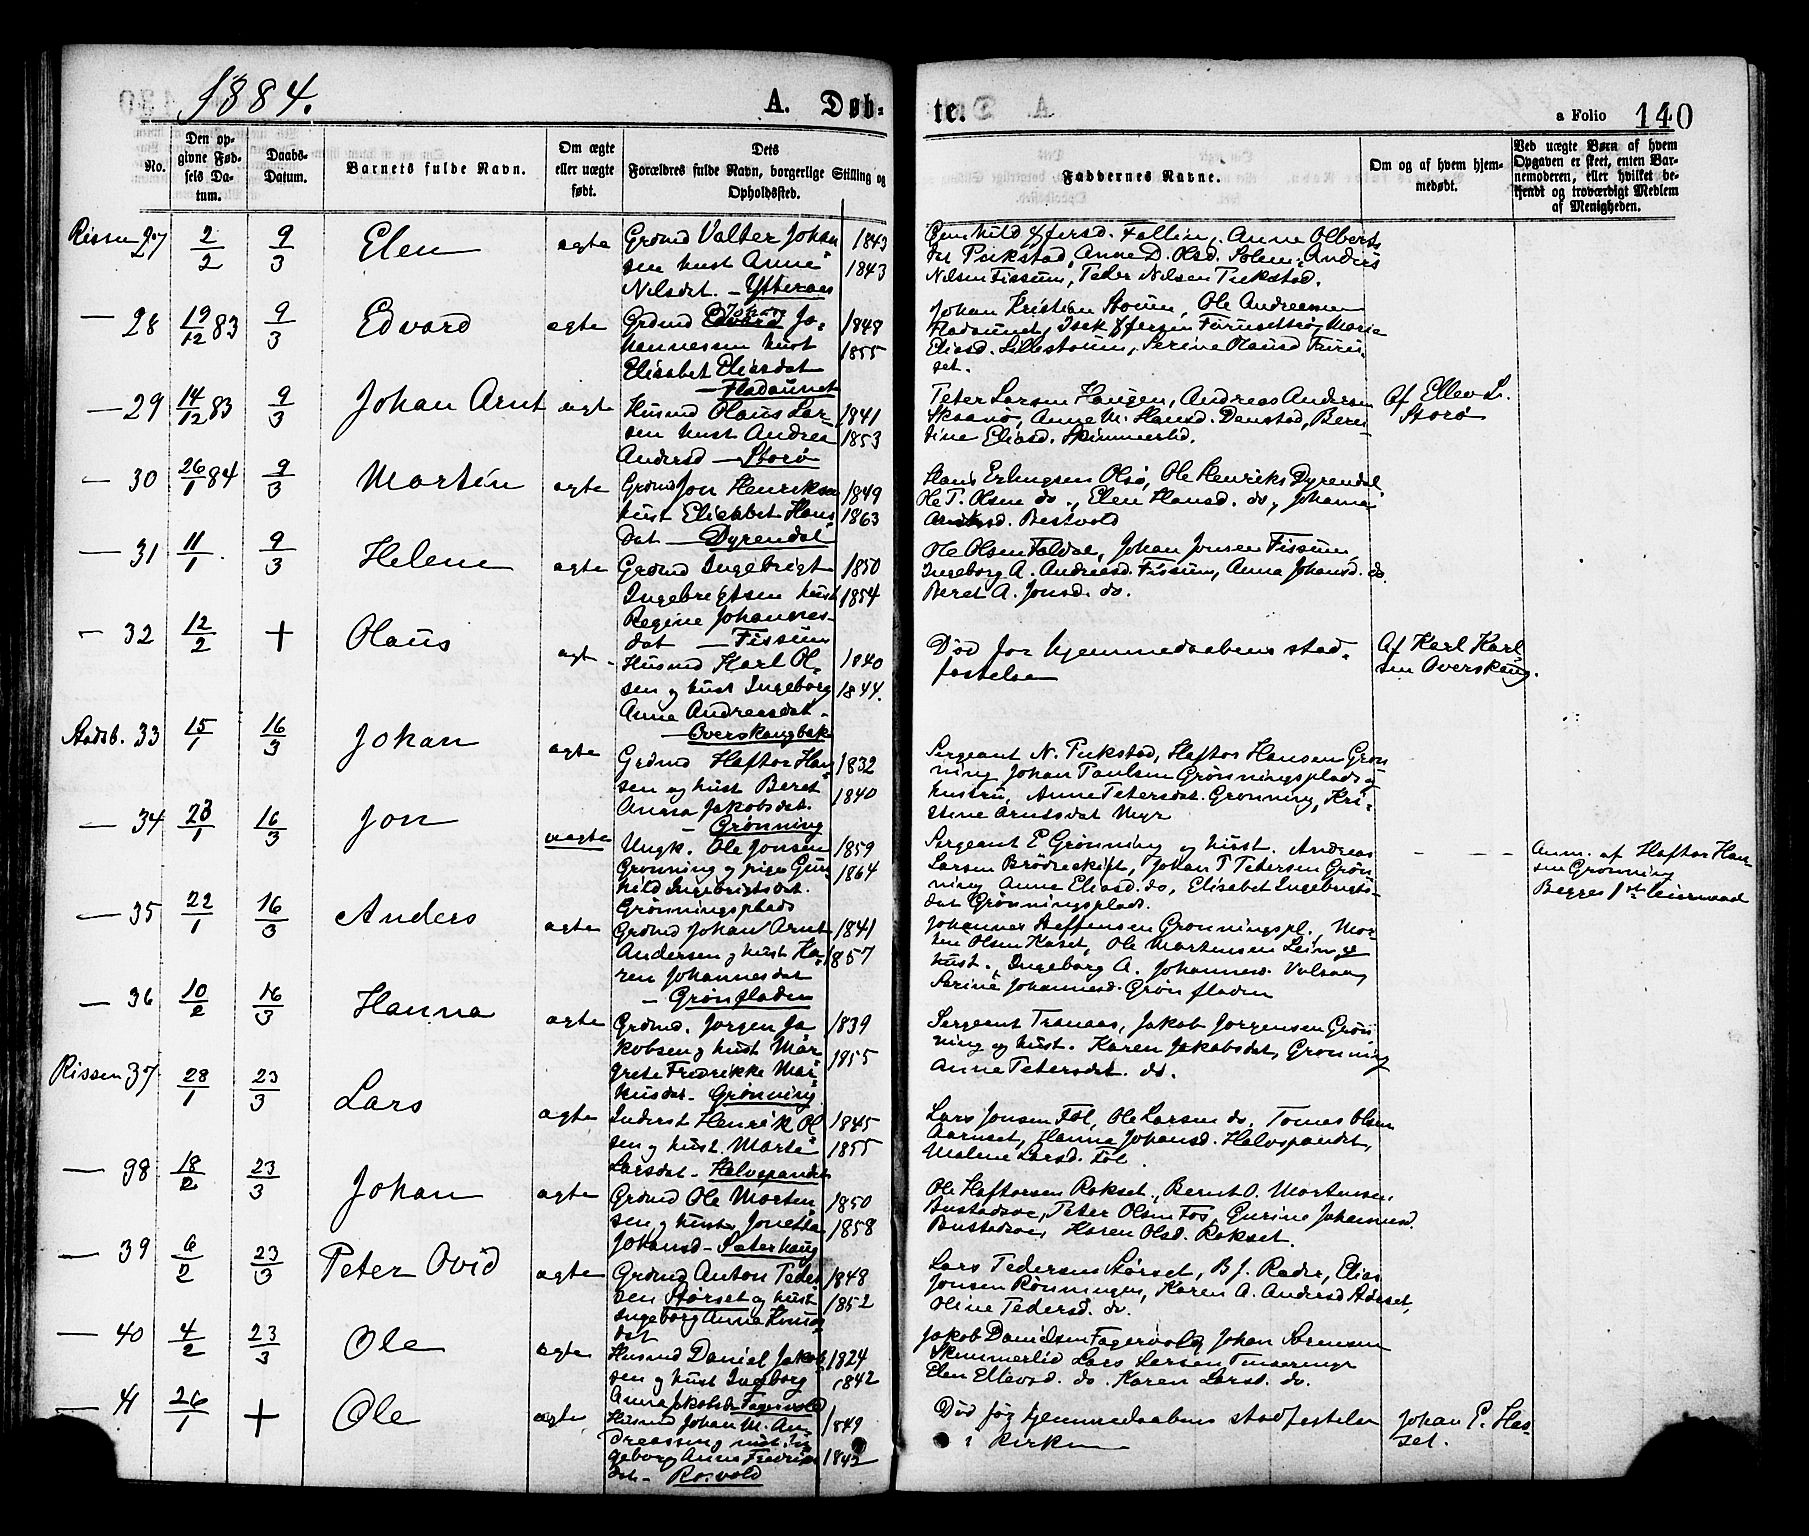 1884.
A. Døb-
te.
a Folio 140
No.
Den opgivne Fødsels Datum.
Daabs-Datum.
Barnets fulde Navn.
Om ægte eller uægte født.
Dets Forældres fulde Navn, borgerlige Stilling og Opholdssted.
Faddernes Navne.
Om og af hvem hjemmedøbt.
Ved uægte Børn af hvem Opgaven er skeet, enten Barnemoderen, eller hvilket bekjendt og troværdigt Medlem af Menigheden.
Rissen 27 2/2 9/3 Elen ægte
Grdmd Valter Johan 1843
sen hust Anne 1843
Nilsdat. – Ytteraas
Fallin, Anne Olberts
Anne D. Olsd. Solem, Anders
Nilsen Fissum, Peder Nilsen
— 28 19/12 83 9/3 Edvard ægte
Grdmd Johan Jo- 1848
hannessen hust 1855
Elisabet Eliasdat
— Fladaunet
Johan Kristian Aoune, Ole Andreassen
Fladaunet, Isak Jørgen Furusettrø, Marie
Eliasd. Lilleaoune, Serine Olausd Furu-
set.
— 29 14/12 83 9/3 Johan Arnt ægte
Husmd Olaus Lar- 1841
sen hust Andrea 1853
Andersd – Storø
Peter Larsen Haugen, Andreas Andersen
Anne M. Hansd. Denstad, Bere-
tine Eliasd. Skimmerlid.
Af Ellev L.
Storø
— 30 26/1 84 9/3 Martin ægte
Grdmd Jon Henriksen 1849
hust Elisabet Hans 1863
dat – Dyrendal
Hans Erlingsen Olsø, Ole Henriks Dyrendal,
Ole P. Olsen do., Elen Hansd. do, Johanna
Bestvold
— 31 11/1 9/3 Helene ægte
Grdmd Ingebrigt 1850
Ingebrigtsen hust 1854
Regine Johannes-
dat – Fissum
Ole Olsen Foldal, Johan Jonsen Fissum,
Ingeborg A. Andreasd. Fissum, Anna Johansd. do.
Beret A. Jonsd. do.
— 32 12/2 + Olaus ægt.
Husmd Karl Ol- 1840
sen og hust Ingeborg 1844.
Anna Andreasdat –
– Overskaugbak
Død før hjemmedaabens stad-
fæstelse
Af Karl Karl
sen Overskaug.
Stadsb. 33 15/1 16/3 Johan ægte
Grdmd Haftor Han 1832
sen og hust Beret 1840
Anna Jakobsdat.
– Grønning
Sergeant N. Haftor Hansen Grøn
ning Johan Paulsen Grønningsplads og
hustru, Anne Petersdat. Grønning, Kri-
stine Arntsdat Myr
— 34 23/1 16/3 Jon uægte
Ungk. Ole Jonsen 1859
Grønning og pige Gun 1864
hild Ingebrigtsdat.
Grønningsplads
Sergeant E Grønning og hust. Andreas
Larsen Brødreskift, Johan P Petersen Grøn
ning Anne Eliasd. do, Elisabet Ingebrigts-
dat Grønningsplads.
– – –
Anm. af Haftor Han-
sen Grønning
Begges 1st leiermaal
— 35 22/1 16/3 Anders ægte
Grdmd Johan Arnt 1841
Andersen og hust Ka- 1857
ren Johannesdat
– Grønfladen
Johannes Steffensen Grønningspl., Mor-
ten Olsen Raset, Ole Mortensen Lein og
hust., Ingeborg A. Johannesd. Volsaas,
Serine Johannesd. Grønfladen
— 36 10/2 16/3 Hanna ægte
Grdmd. Jørgen Ja 1839
kobsen og hust Mar 1855
grete Fredrikke Mar-
kusdat – Grønning
Sergeant Tranaas, Jakob Jørgensen Grøn
ning og hust. Karen Jakobsdat, Grønning
Anne Petersdat. do.
Rissen 37 28/1 23/3 Lars ægte
Inderst Henrik Ol 1845
sen og hust. Marta 1855
Larsdat – Halvspandet
Lars Jonsen Føl, Ole Larsen do, Tomas Olsen
Aarnset, Hanna Johansd. Halvspandet,
Malene Larsd. Føl.
— 38 18/2 23/3 Johan ægte
Grdmd Ole Morten 1850
sen og hust Jonetta 1858
Johansd – Sæterhaug
Ole Haftorsen Rokset, Bernt O. Mortensen,
Peter Olsen Fos, Gurine Johannesd.
Karen Olsd. Rokset.
— 39 6/2 23/3 Peter Ovid ægte
Grdmd Anton Peder 1848
sen Størset og hust 1852
Ingeborg Anna Knuds
dat
Lars Pedersen Størset, B. J. Rader, Elias
Jonsen Rønningen, Karen A. Andersd Størset,
Oline Pedersd. do.
— 40 4/2 23/3 Ole ægte
Husmd Daniel Jakob 1824
sen og hust Ingeborg 1842
Anna Jakobsd – Fagervold
Jakob Danielsen Fagervold, Johan Sørensen
Skimmerlid Lars Larsen
Elen Ellevsd. do. Karen Larsd. do.
— 41 26/1 + Ole ægte
Husmd Johan M. An- 1849
dreassen og hust In- 1842
geborg Anna Fredriks
dat – Rosvold
Død før hjemmedaabens stadfæstelse
i kirken
Johan P. Has-
set.